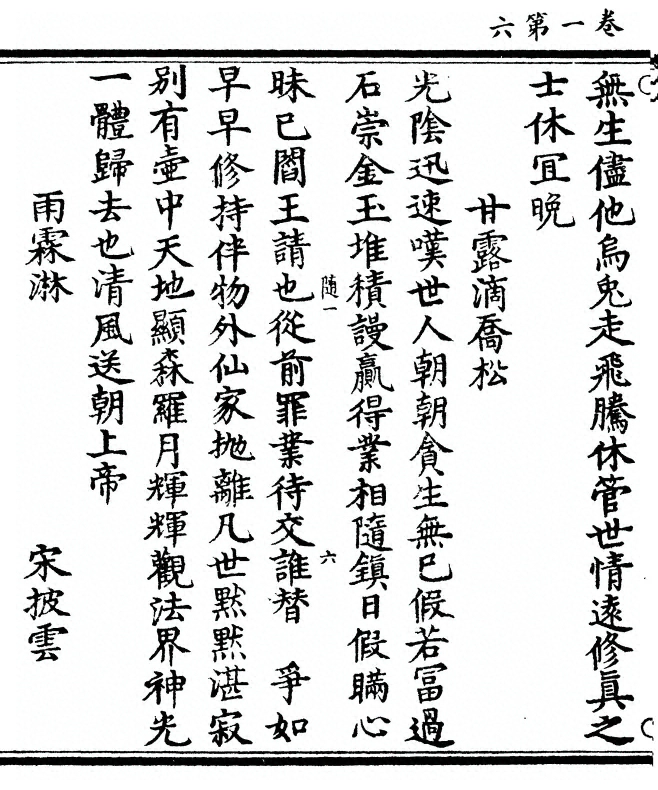 卷一第六
無生儘他烏兎走飛騰休管世情逺修眞之
士休冝晩
甘露滴喬松
光陰迅速嘆世人朝朝貪生無已假若冨過
石崇金玉堆積謾贏得業相隨鎮日假瞞心
隨一
六
昧已閻王請也從前罪業待交誰替 爭如
早早修持伴物外仙家抛離凡世默默湛寂
別有壷中天地顯森羅月輝輝觀法界神光
一體歸去也清風送朝上帝
雨霖淋 宋披雲